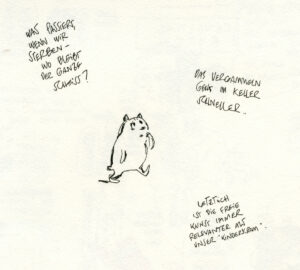 WAS PASSIERT,
WENN WIR
STERBEN –
WO BLEIBT
DER GANZE
SCHEISS?
DAS VERGAMMELN
GEHT IM KELLER
SCHNELLER.
LETZTLICH
IST DIE FREIE
KUNST IMMER
RELEVANTER ALS
UNSER "KINDERKRAM".